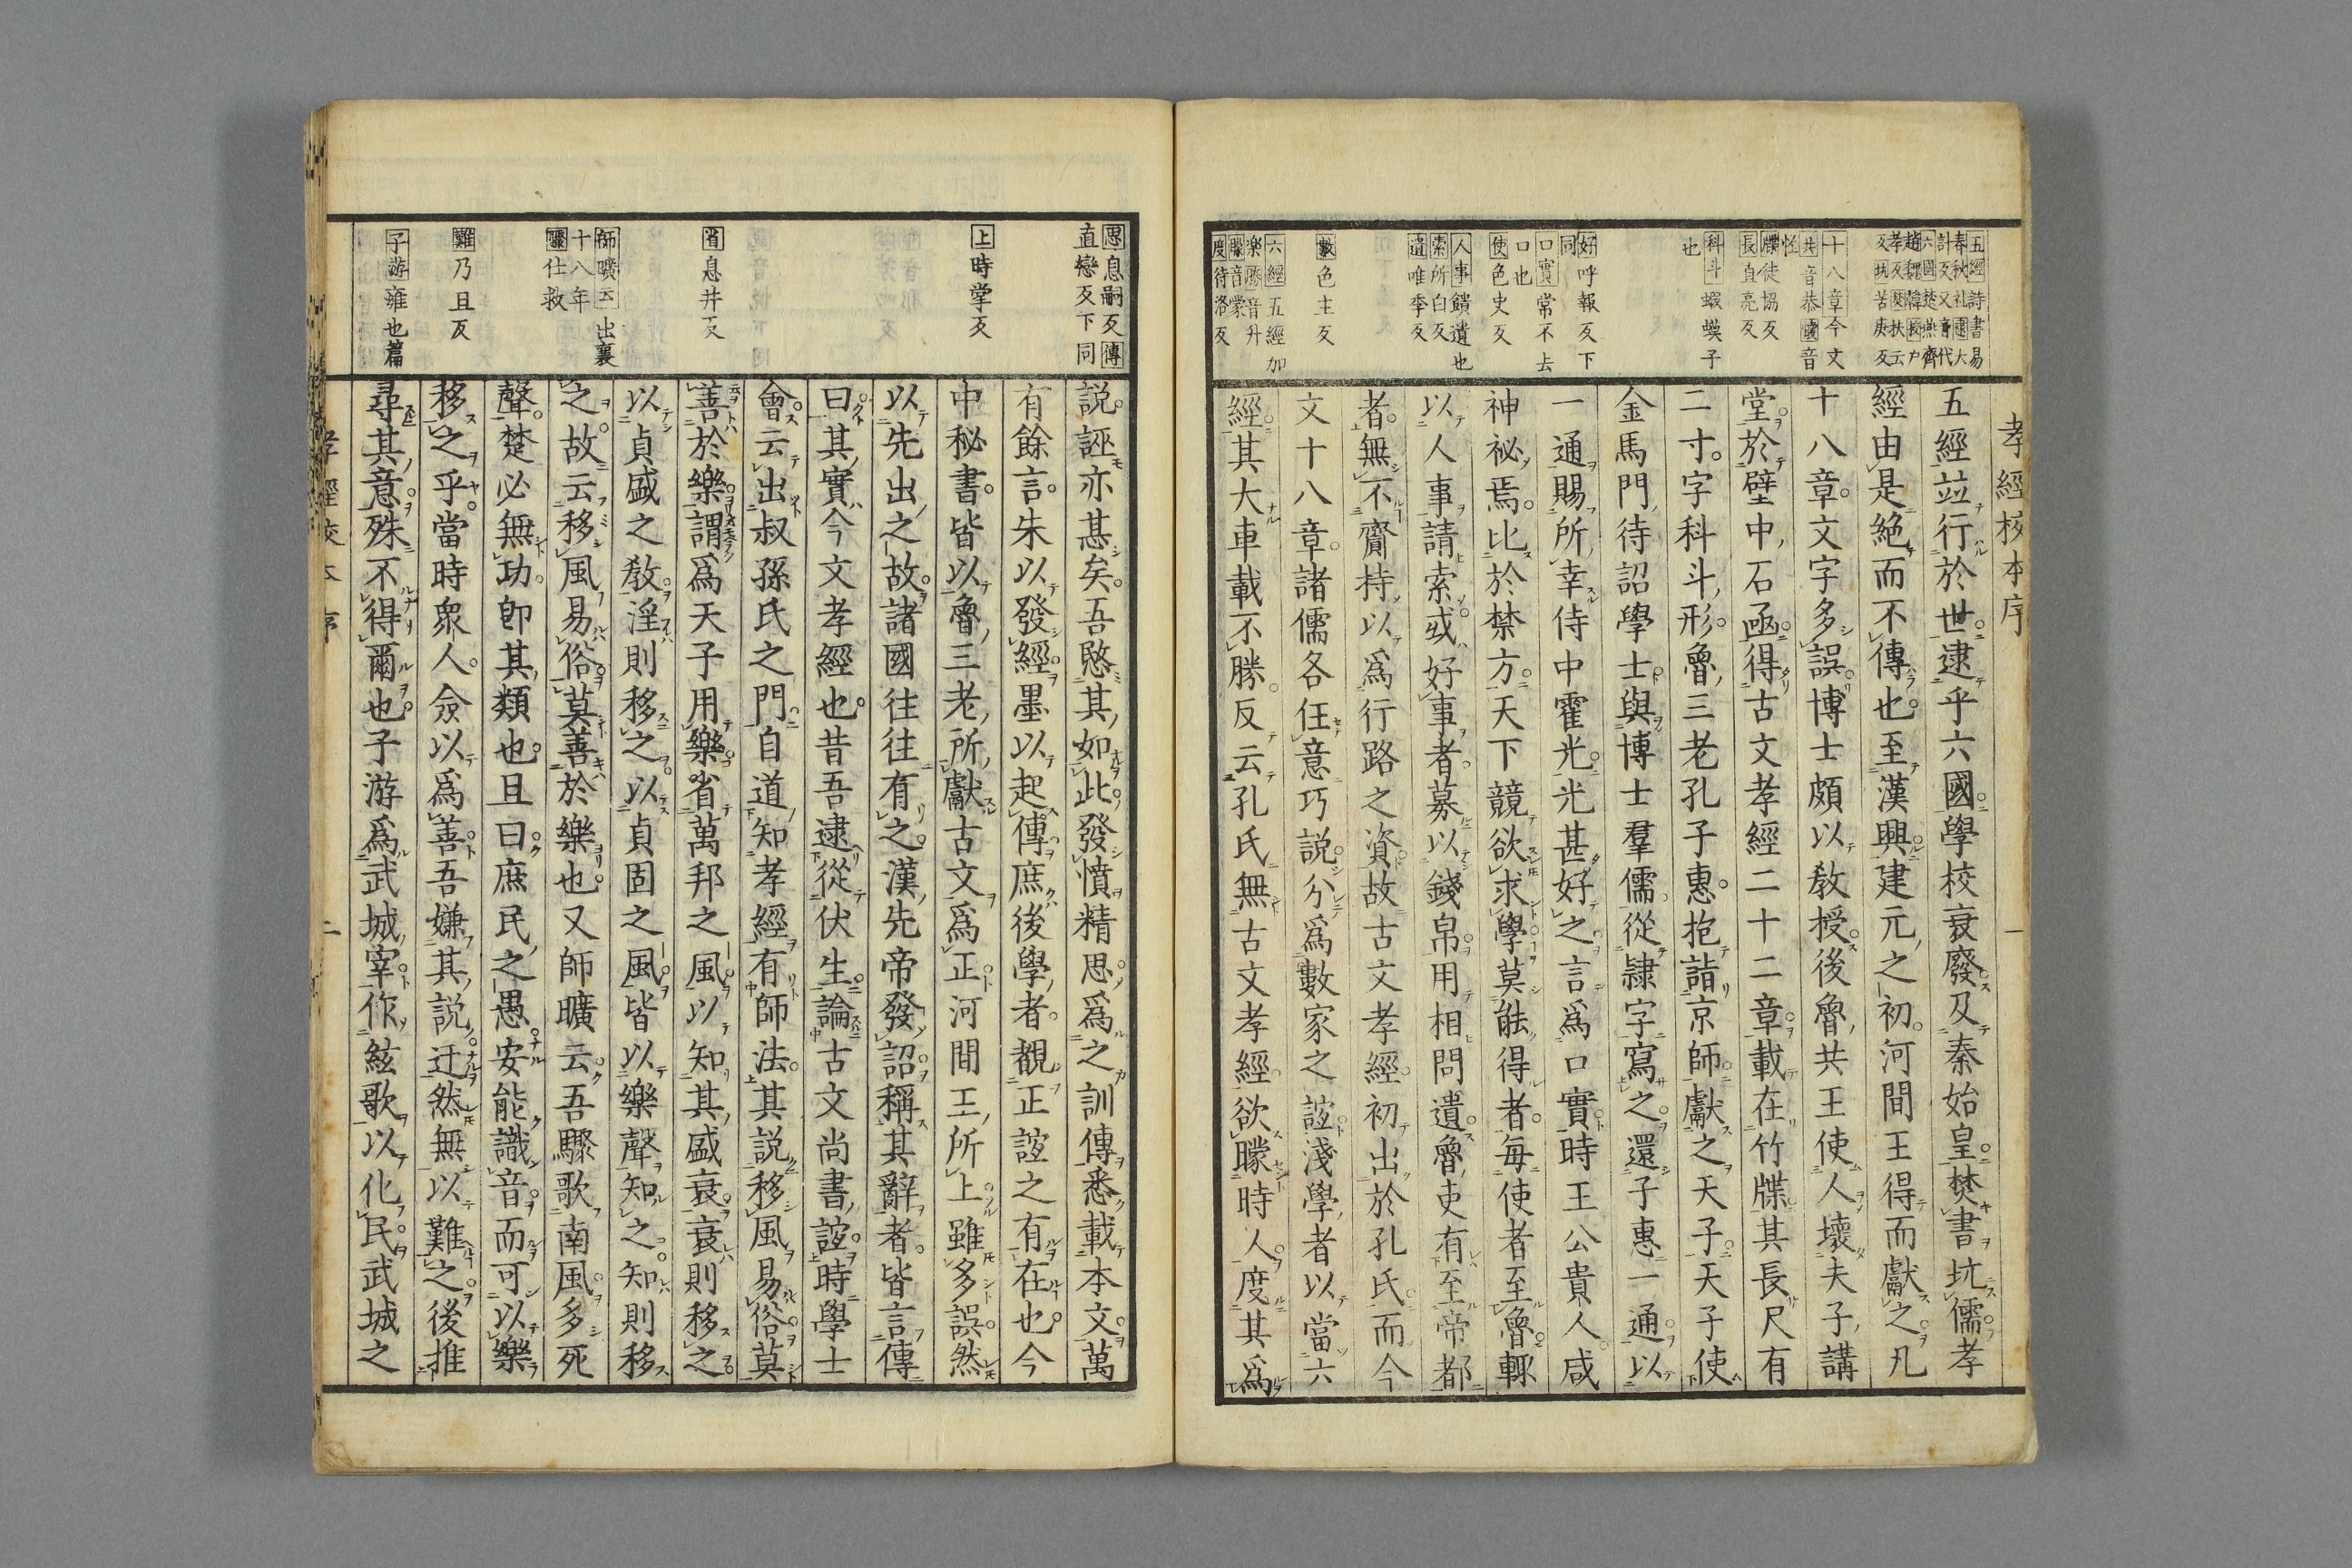 孝經校本序
一
五經並行於世逮乎六國學校衰廢及秦始皇焚書坑儒孝
經由是絶而不傳也至漢興建元之初河間王得而獻之凡
十八章文字多誤博士頗以教授後魯共王使人壞夫子講
堂於壁中石函得古文孝經二十二章載在竹牒其長尺有
二寸字科斗形魯三老孔子惠抱詣京師獻之天子天子使
金馬門待詔學士與博士羣儒從隷字寫之還子惠一通以
一通賜所幸侍中霍光光甚好之言爲口實時王公貴人咸
神祕焉比於禁方天下競欲求學莫能得者每使者至魯輒
以人事請索或好事者募以錢帛用相問遺魯吏有至帝都
者無不齎持以爲行路之資故古文孝經初出於孔氏而今
文十八章諸儒各任意巧説分爲數家之誼淺學者以當六
經其大車載不勝反云孔氏無古文孝經欲矇時人度其爲
五經詩書易
春秋礼逮大
計反又音代
六國楚燕齊
趙魏韓校户
孝反廢扶云
反坑苦庚反
十八章今文
共音恭國音
怪
牒徒協反
長直亮反
科斗蝦蟆子
也
好呼報反下
同
口實常不去
口也
使色史反
人事饋遺也
索所白反
遺唯季反
數色主反
六經五經加
楽勝音升
矇音蒙
度待洛反
説誣亦甚矣吾愍其如此發憤精思爲之訓傳悉載本文萬
有餘言朱以發經墨以起傳庶後學者覩正誼之有在也今
中秘書皆以魯三老所獻古文爲正河間王所上雖多誤然
以先出之故諸國往往有之漢先帝發詔稱其辭者皆言傳
曰其實今文孝經也昔吾逮從伏生論古文尚書誼時學士
會云出叔孫氏之門自道知孝經有師法其説移風易俗莫
善於樂謂爲天子用樂省萬邦之風以知其盛衰衰則移之
以貞盛之教淫則移之以貞固之風皆以樂聲知之知則移
之故云移風易俗莫善於樂也又師曠云吾驟歌南風多死
聲楚必無功卽其類也且曰庶民之愚安能識音而可以樂
移之乎當時衆人僉以爲善吾嫌其説迂然無以難之後推
尋其意殊不得爾也子游爲武城宰作絃歌以化民武城之
思息嗣反傳
直戀反下同
上時掌反
省息井反
師曠云出襄
十八年
驟仕救
難乃且反
子游雍也篇
孝經校本序
二